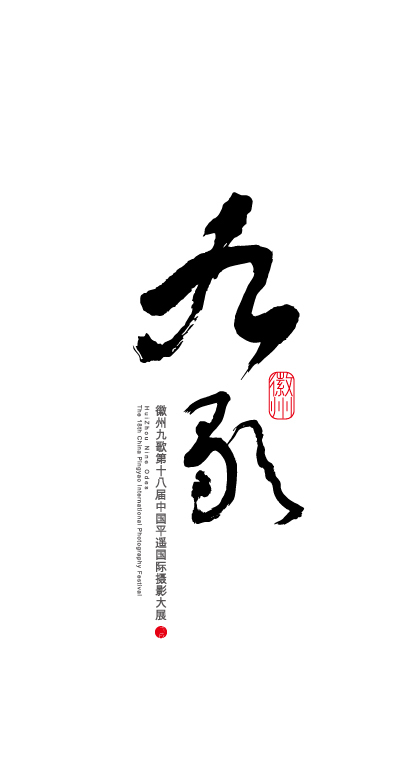 九歌
徽州
徽州九歌第十八届中国平遥国际摄影大展
HuiZhou Nine Odes
The 18th China Pingyao International Photography Festival